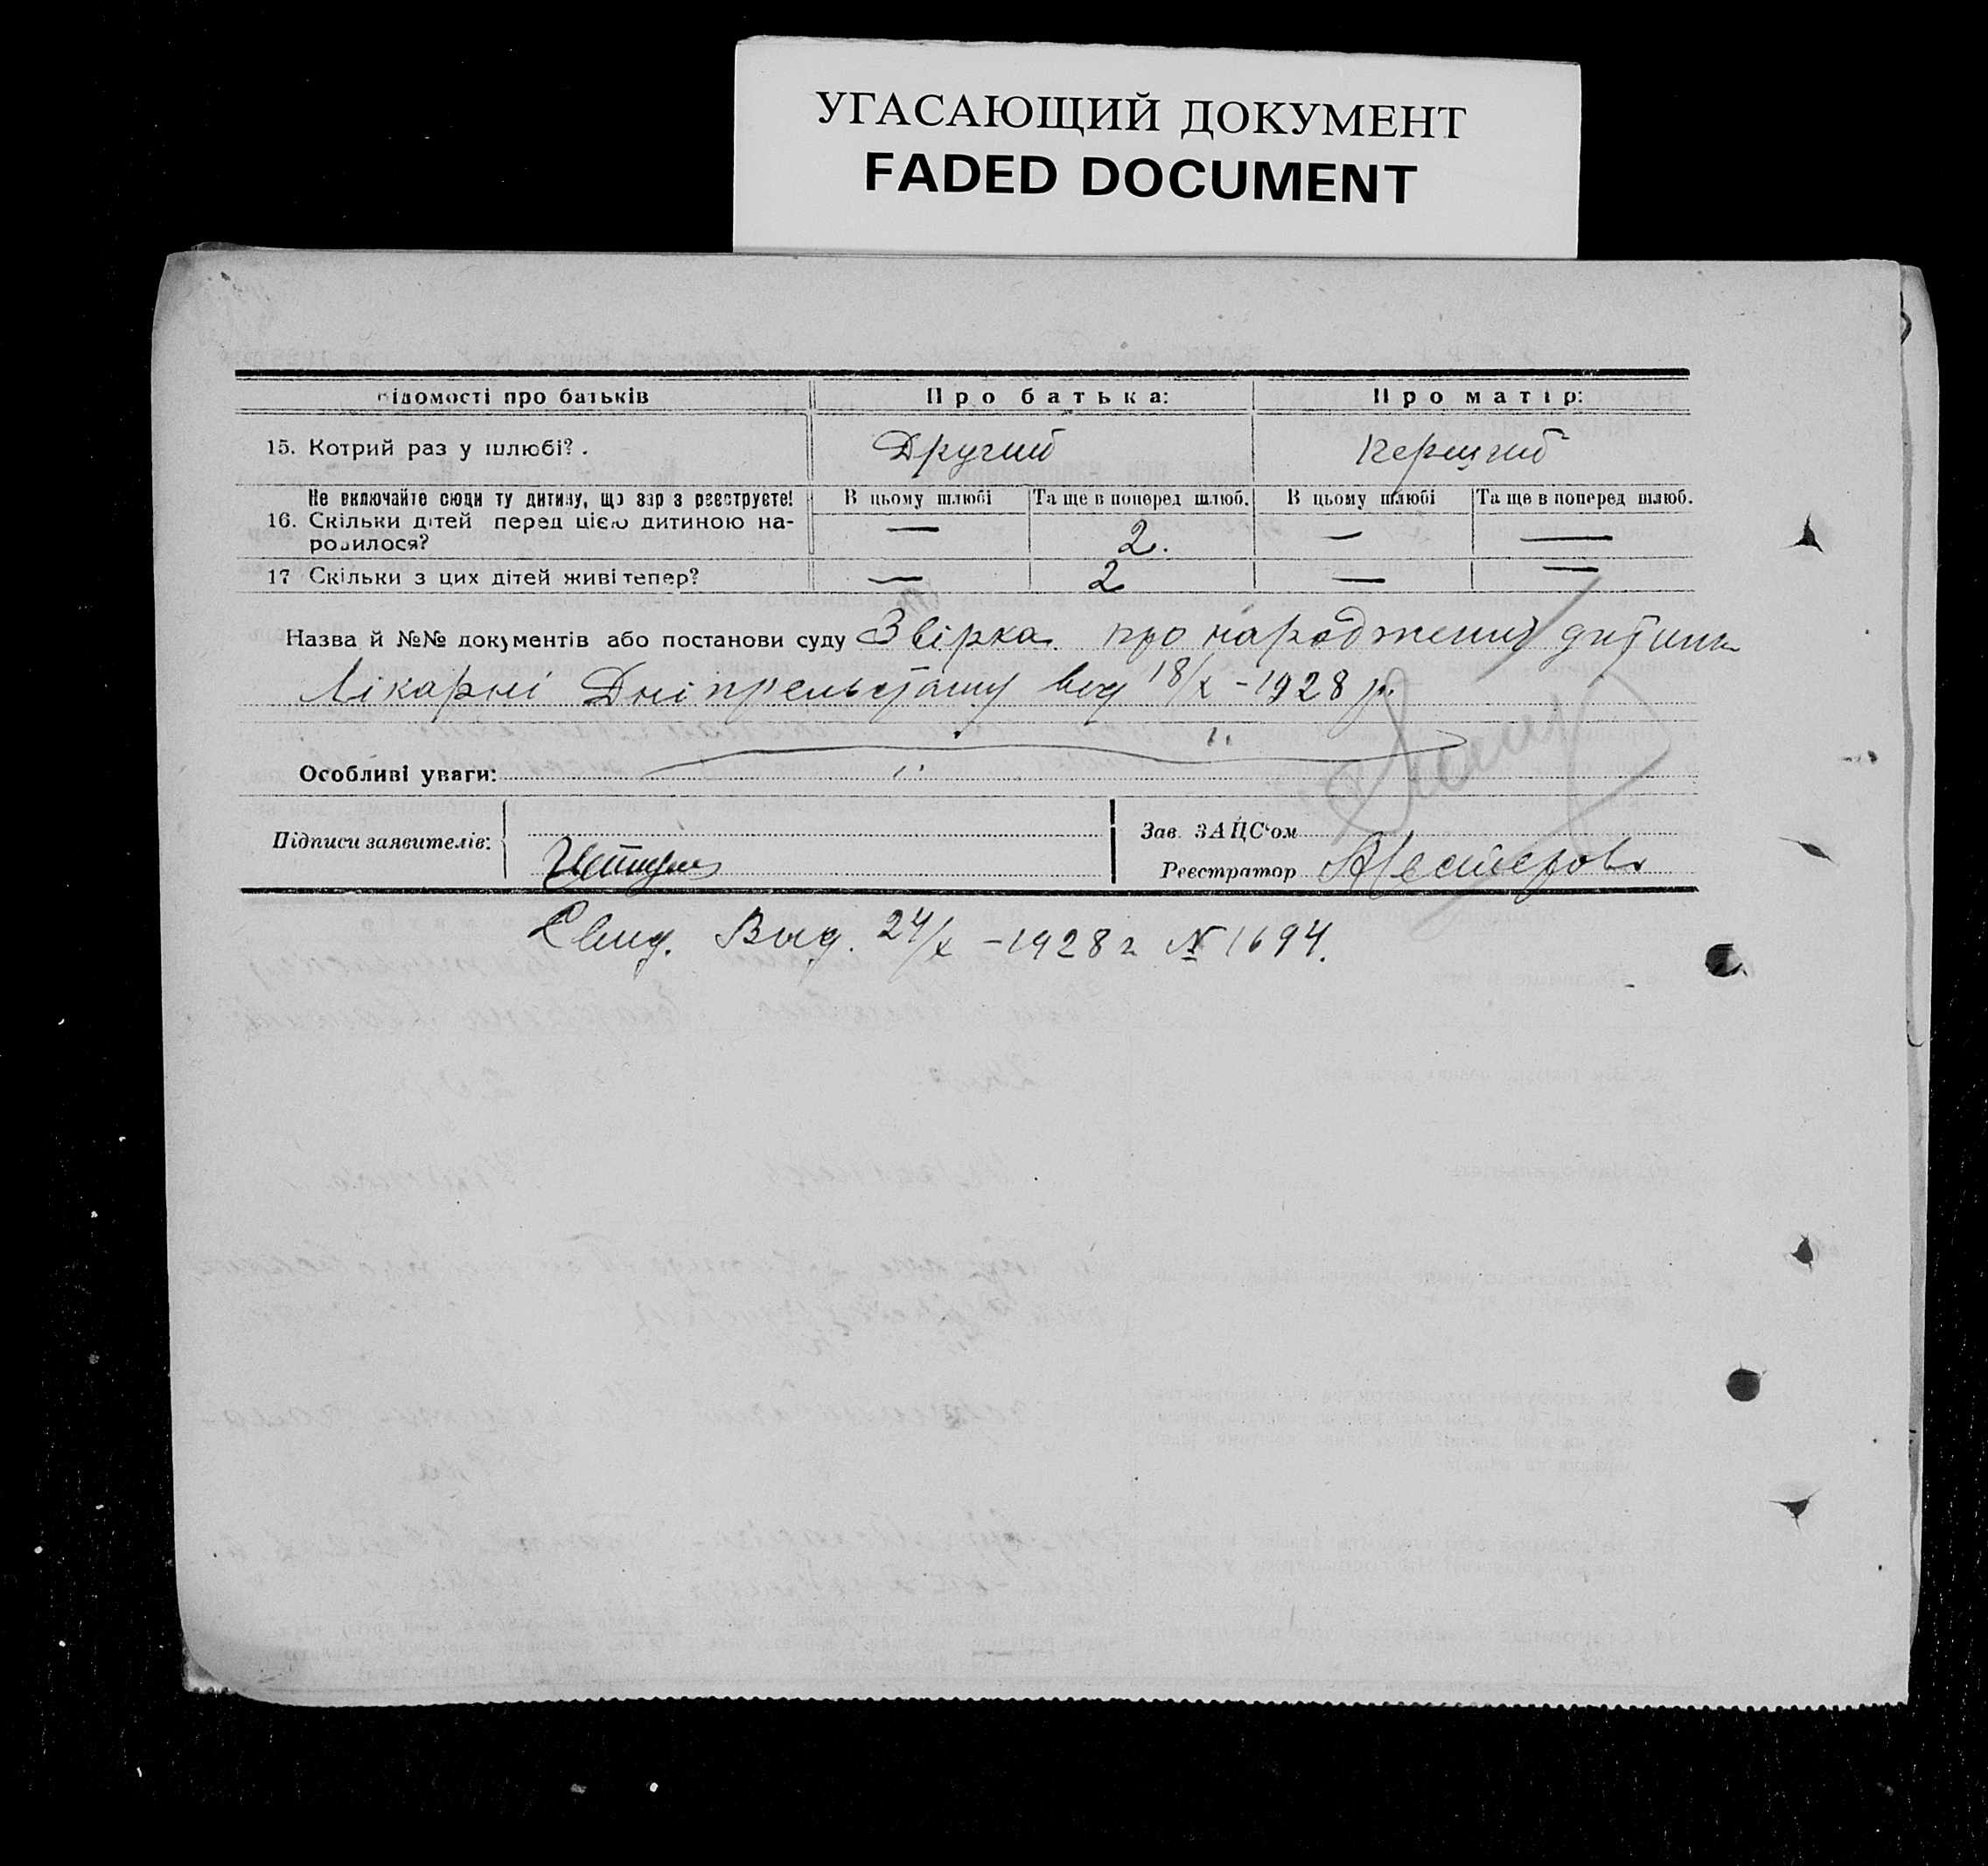 УГАСАЮЩИЙ ДОКУМЕНТ
FADED DOCUMENT
ідомості про батьків Про батька: Про матір:
15. Котрий раз у шлюбі?. Другий Перший
Не включайте сюди ту дитину, що зар з реєструєте! В цьому шлюбі Та ще в поперед шлюб. В цьому шлюбі Та ще в поперед шлюб.
16. Скільки дітей перед цією дитиною на-
родилося? — 2. — —
17 Скільки з цих дітей живі тепер? — 2 — —
Назва й №№ документів або постанови суду Звірка про народження дитини
Лікарні Дніпрельстану від 18/X - 1928 р.
Особливі уваги:
Підписи заявителів:
Зав. ЗАЦС'ом
Реєстратор Нестерова
Свид. Выд. 24/X - 1928 г № 1694.